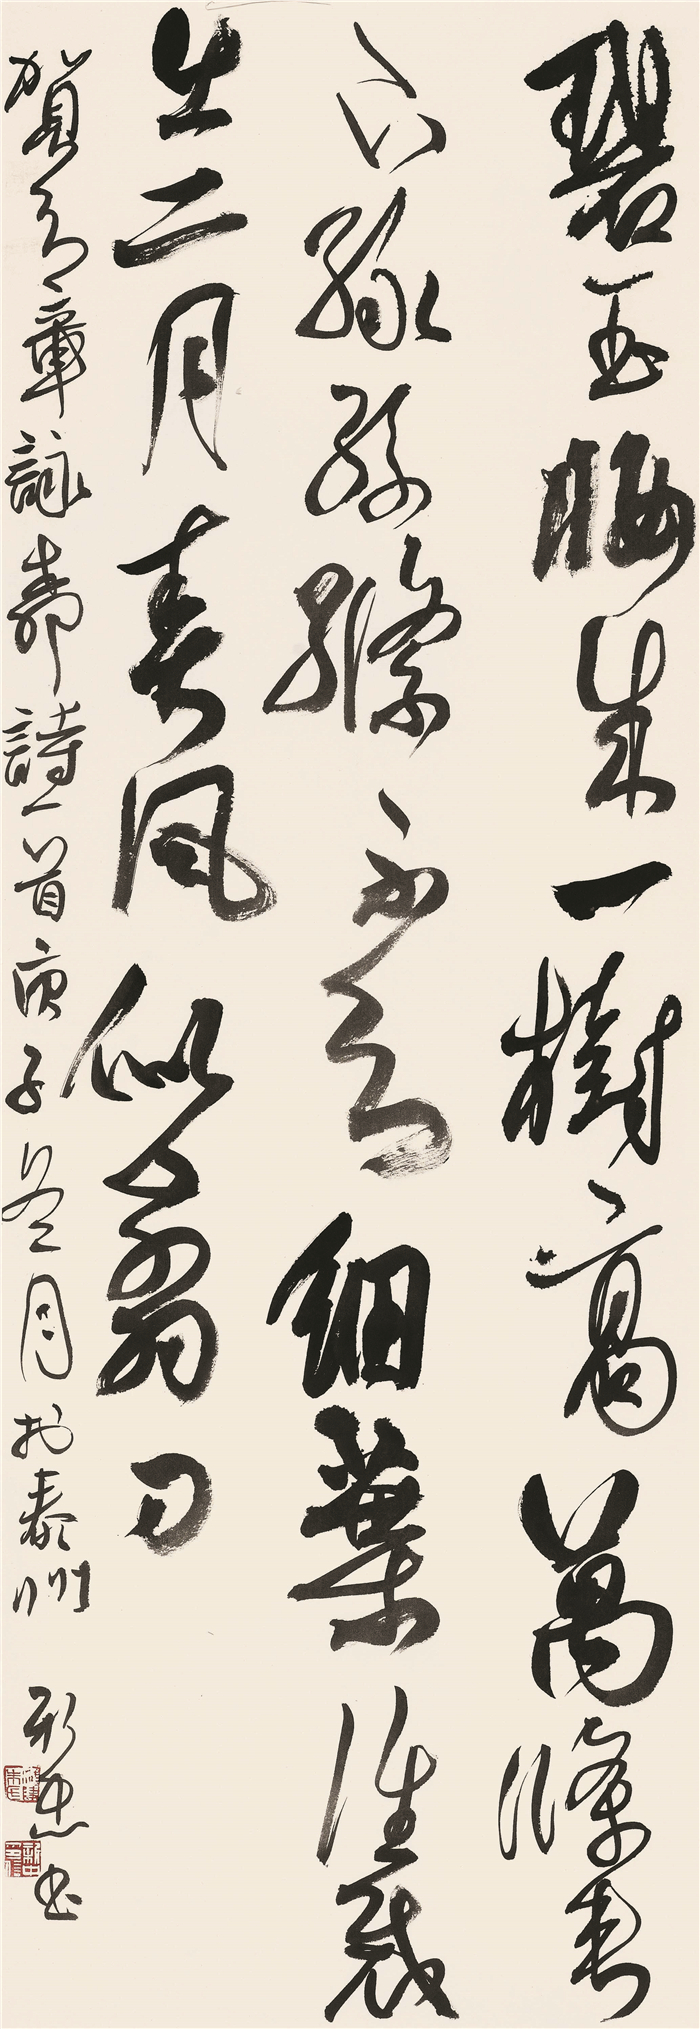 碧玉妝成一樹高萬條垂
下綠絲縧不知細葉誰裁
出二月春風似翦刀
賀知章詠柳詩一首庚子冬月於泰州 新忠書